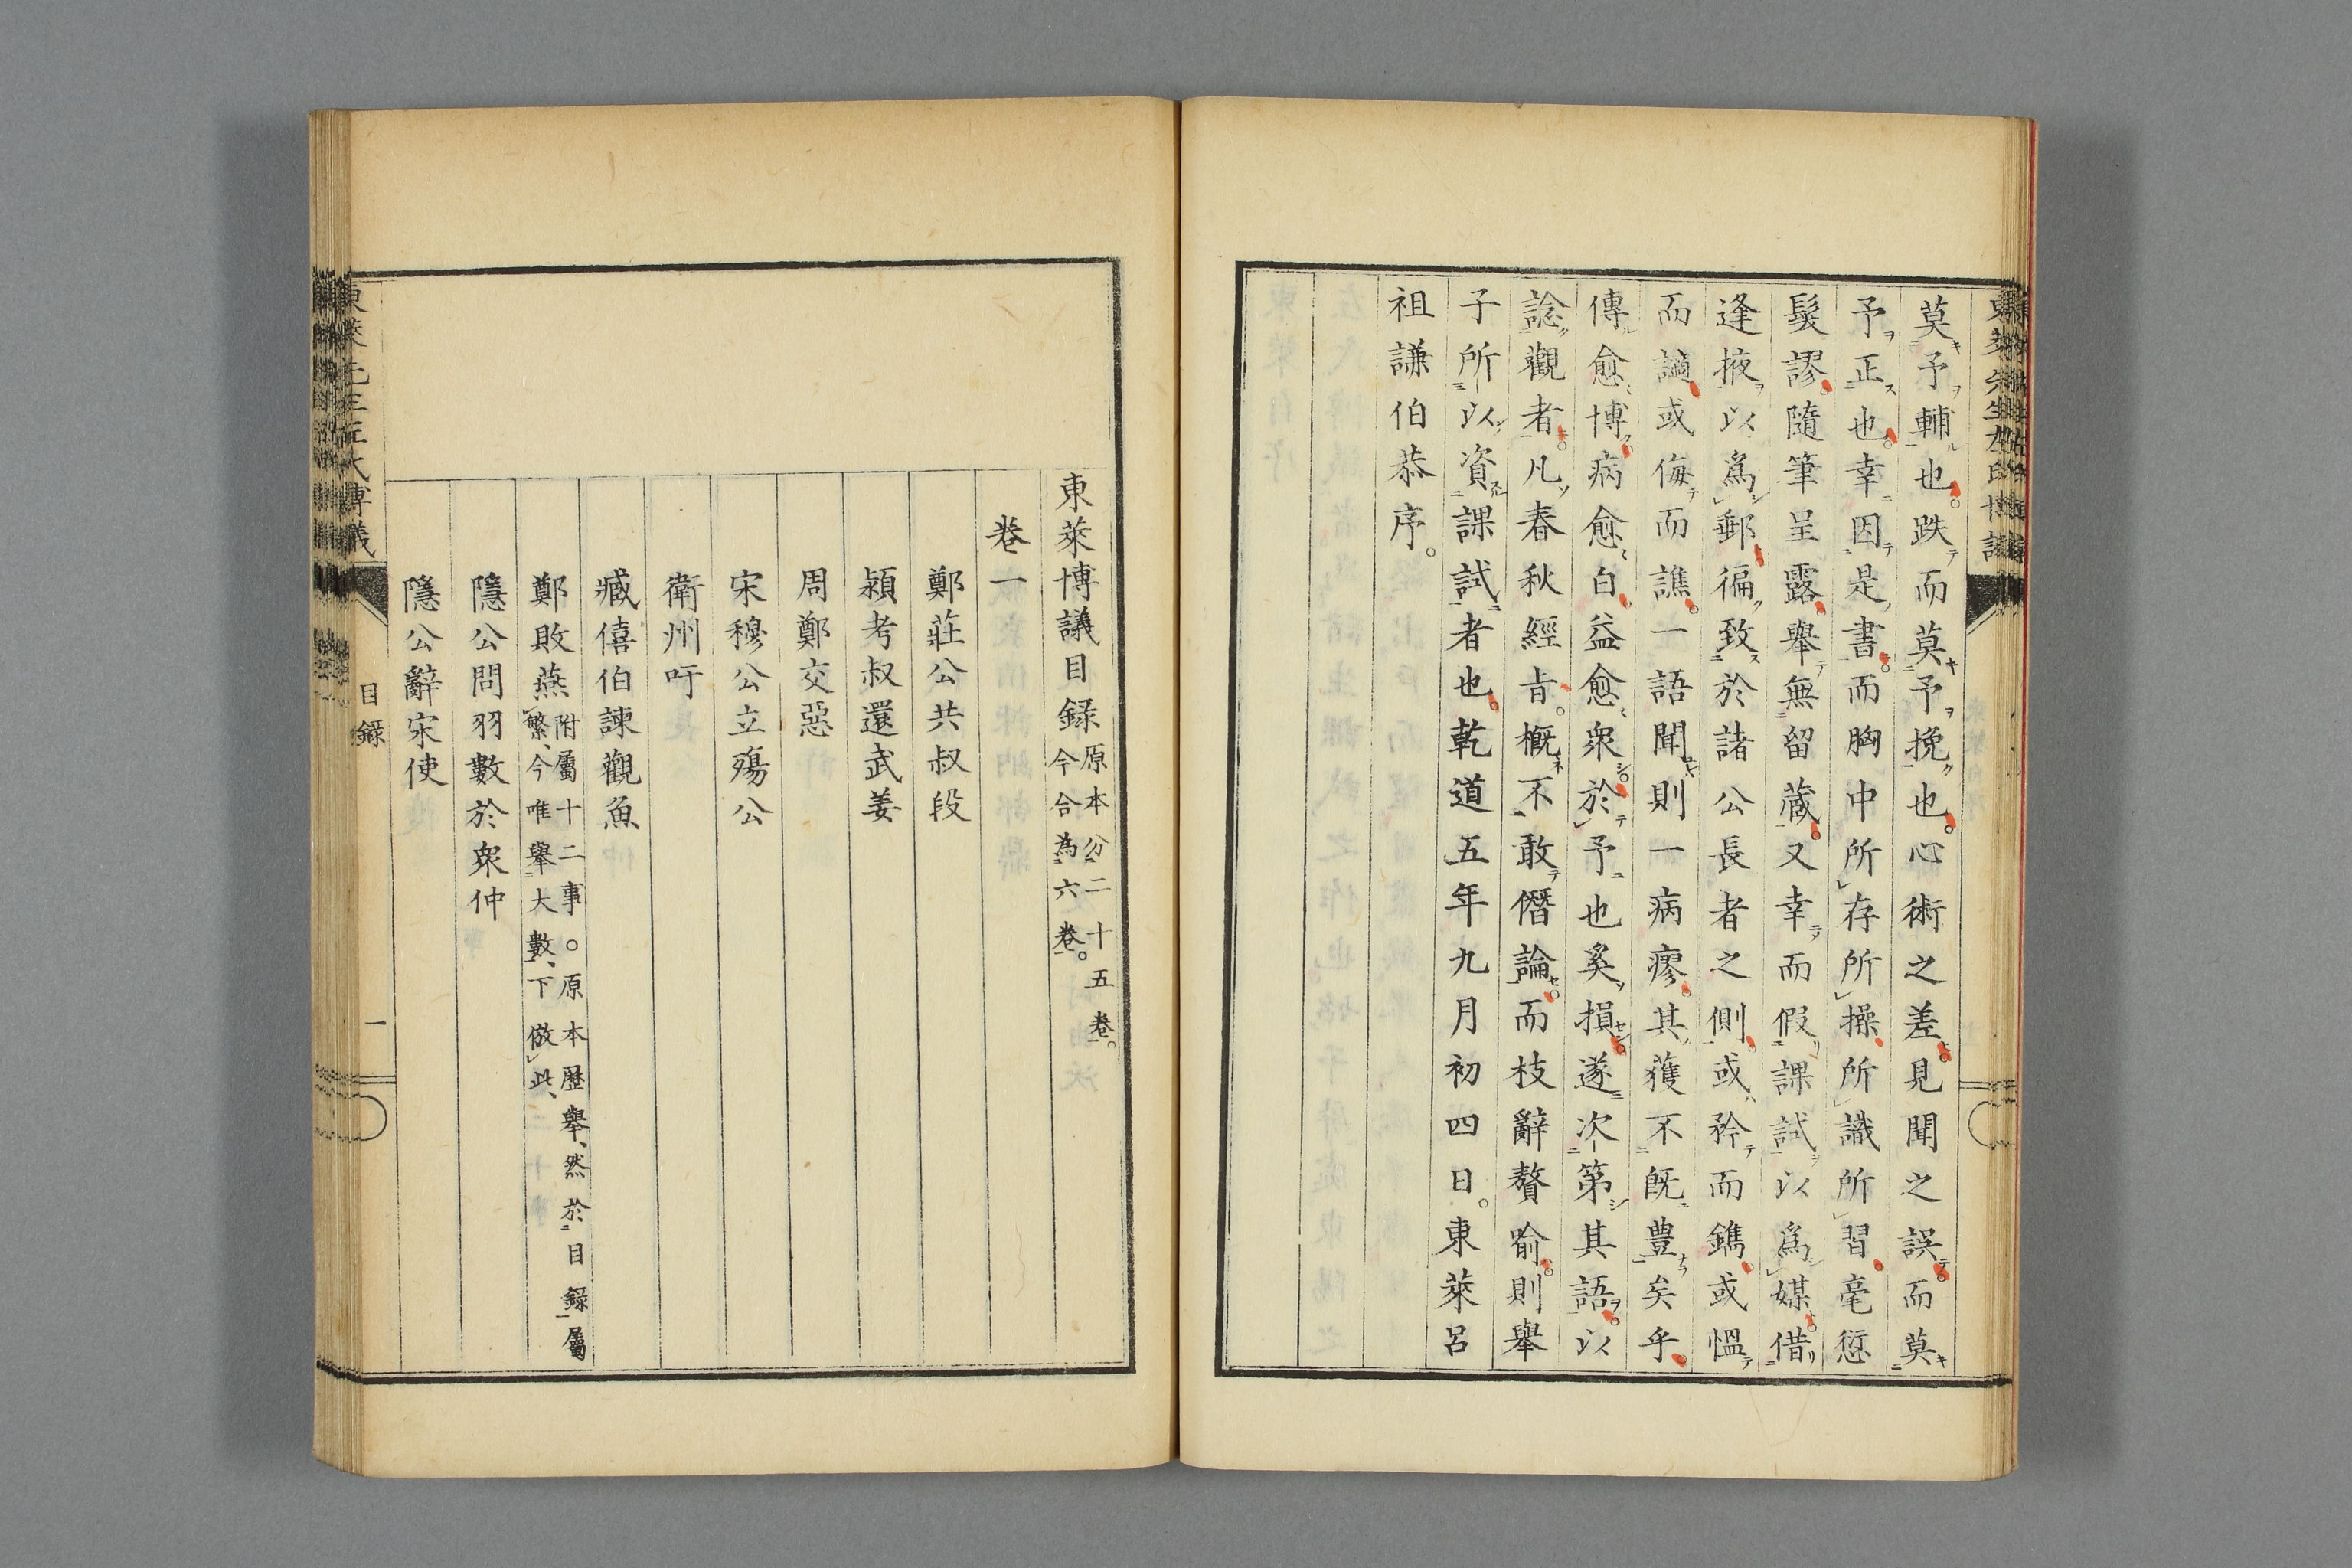 莫予輔也。跌而莫予挽也。心術之差。見聞之誤。而莫
予正也。幸因是書。而胸中所存所操。所識所習。毫愆
髮謬。隨筆呈露。舉無留藏。又幸而假課試以爲媒。借
逢掖以爲郵。徧致於諸公長者之側。或矜而鐫。或慍
而謫。或侮而譙。一語聞則一病瘳。其獲不既豐矣乎。
傳愈博。病愈白。益愈衆。於予也奚損。遂次第其語。以
諗觀者。凡春秋經旨。概不敢僭論。而枝辭贅喻。則舉
子所以資課試者也。乾道五年九月初四日。東萊呂
祖謙伯恭序。
東萊博議目録原本分二十五卷。今合為六卷。
卷一
鄭莊公共叔段
潁考叔還武姜
周鄭交惡
宋穆公立殤公
衛州吁
臧僖伯諫觀魚
鄭敗燕附屬十二事。原本歷舉、然於目録屬繁、今唯舉大數、下倣此、
隱公問羽數於衆仲
隱公辭宋使
目録
一